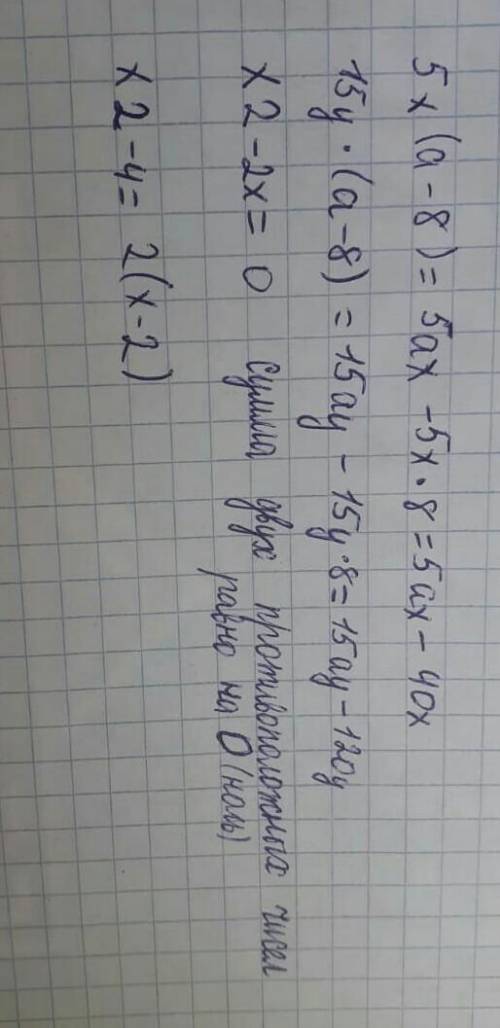 5x (a - 8) = 5ax - 5x · 8 = 5ax - 40x
15y · (a - 8) = 15ay - 15y · 8 = 15ay - 120y
x 2 - 2x = 0 сумма двух противоположных чисел
равно на 0 (ноль)
x 2 - 4 = 2(x - 2)